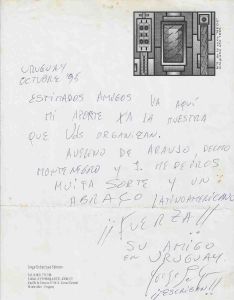 URUGUAY
OCTUBRE '96
ESTIMADOS AMIGOS VA AQUÍ
MI APORTE XA LA MUESTRA
QUE UDS ORGANIZAN.
AVELINO DE ARAUJO, DECHO
MONTENEGRO Y J. MEDEIROS
MUITA SORTE Y UN
ABRAÇO LATINOAMERICANO
¡¡FUERZA!!
SU AMIGO
EN URUGUAY.
¡ESCRIBAN!